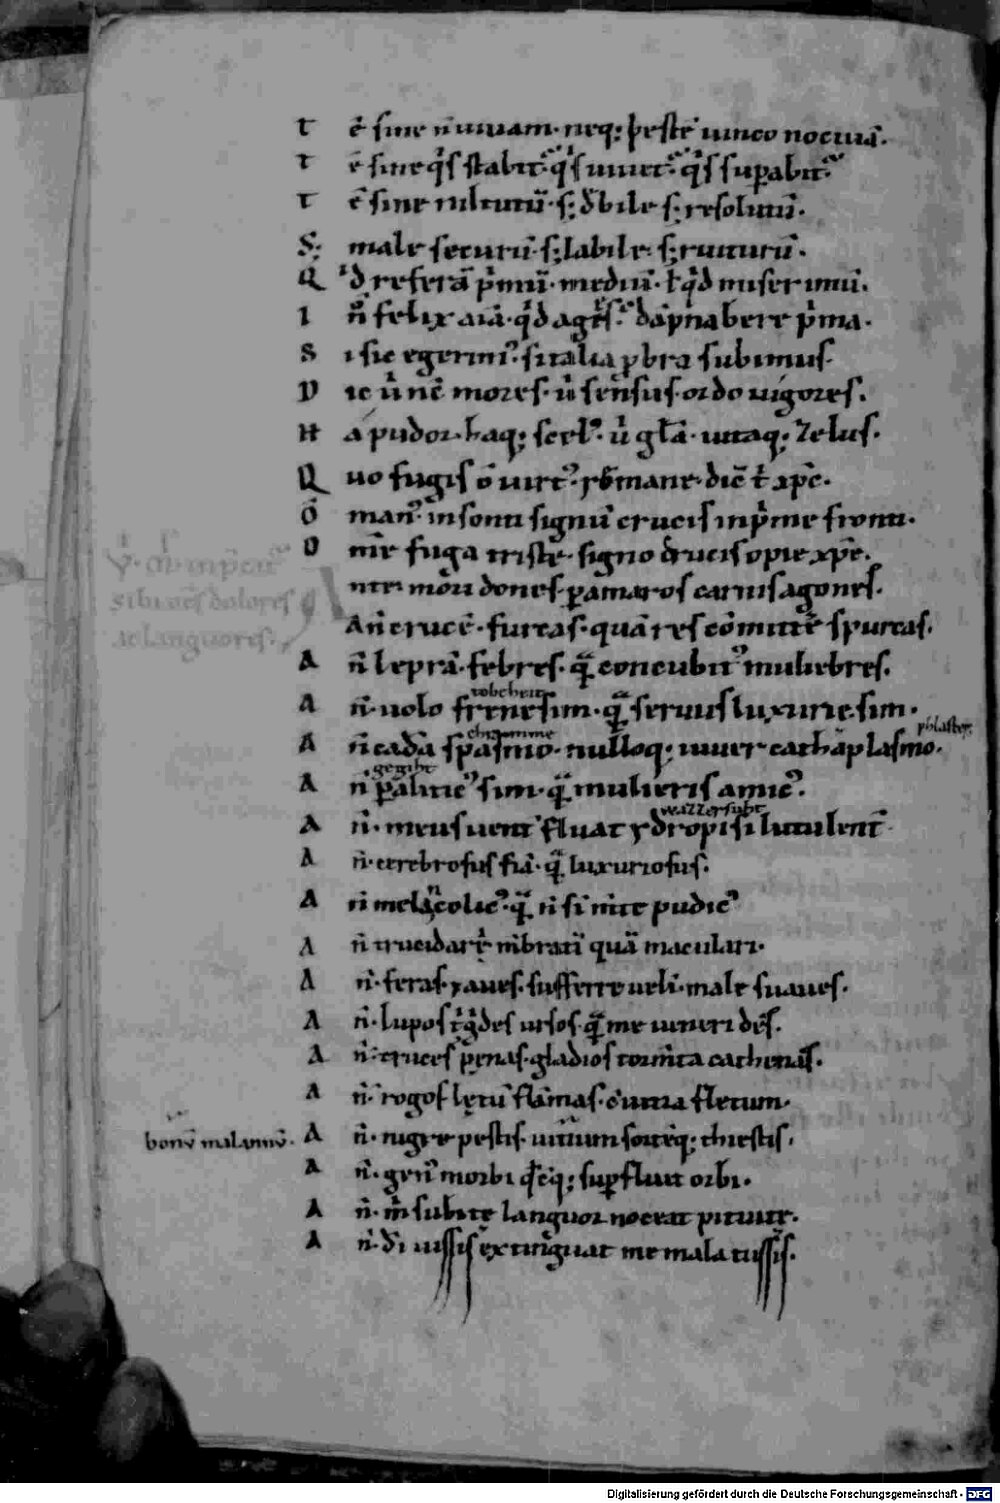 T ē sine n̄ uiuam · neq; peste uinco nociuā.
T ē sine q̄s stabit · q̄s uiuet · q̄s supabit
T ē sine nil tutū · s; d̄bile s; resolutū.
S; male securū · s; labile · s; ruiturū.
Q 'd referā p̄mū · mediū · t q'd miser imū.
I n felix aīa · q'd ages · dāpna bere p̄ma.
S i sic egerim' · si talia pbra subimus
D ic ū nc̄ mores · ū sensus · ordo uigores.
H a pudor · haq; scel' · ū glā · uitaq; zelus.
Q uo fugis ō uirt' · romane · dic t xpc̄.
O man' insonti signū crucis inp̄me fronti.
O m̄e fuga triste · signo crucis o pie xp̄e.
nte mori dones · p amaros carnis agones.
An̄ crucē · furcas · quā res cōmittē spurcas.
V̄
sibi oēs dolores
ac languores.
A n̄ leprā · febres · q̄ concubit' muliebres.
tobcheit
A n̄ · uolo frenesim · q̄ seruus luxurie sim.
chramme phlaster
A n̄ cadā spasmo · nulloq; iuuer cathaplasmo.
gegiht
A n̄ paliticʼ sim · q̄ mulieris amic'.
wazzersuht
A n̄ · meus uent' fluat ydropisi lutulent'
A n̄ · cerebrosus fiā · q̄ luxuriosus.
A n̄ melācolic' · q̄ n̄ si m̄te pudic'
A n̄ trucidarē m̄bratī quā maculari.
A n̄ · feras · ⁊ aues · sufferre ueli · male suaues.
A n̄ · lupos tigdes ursos · q̄ me ueneri des.
A n̄ · cruces penas · gladios torm̄ta cathenas.
A n̄ · rogos letū flāmas · c̄uitia fletum.
bonū malannū.
A n̄ · nigre pestis · uitium sorteq; thiestis.
A n̄ · gen' morbi q̄cq; supfluit orbi.
A n̄ · m̄ subite languor noceat pituite.
A n̄ · d̄i iussis extinguat me mala tussis.
Digitalisierung gefördert durch die Deutsche Forschungsgemeinschaft - DFG